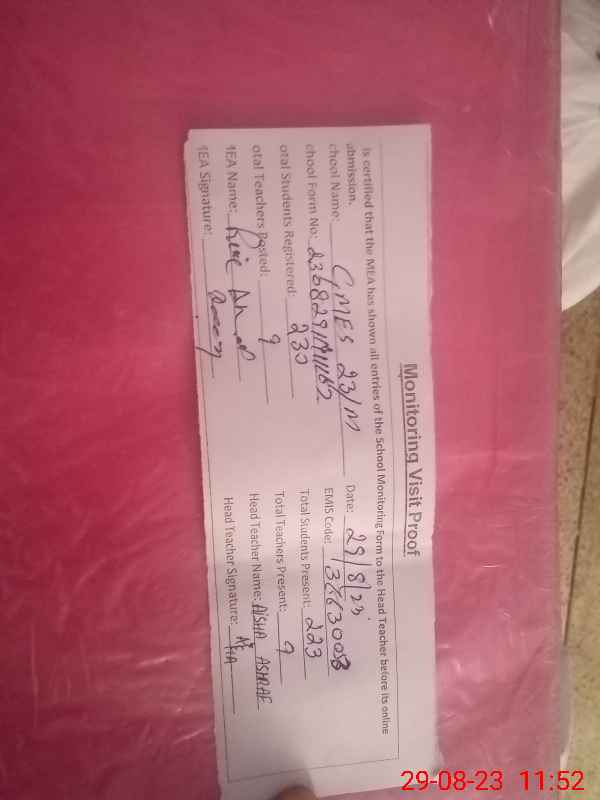 Monitoring Visit Proof
is certified that the MEA has shown all entries of the School Monitoring Form to the Head Teacher before its online
ubmission.
chool Name: GMES 23/M Date: 29/8/23
chool Form No: EMIS Code:
otal Students Registered: 230 Total Students Present: 223
otal Teachers Posted: 9 Total Teachers Present: 9
MEA Name: Head Teacher Name: AISHA ASHRAF
MEA Signature: Head Teacher Signature:
29-08-23 11:52